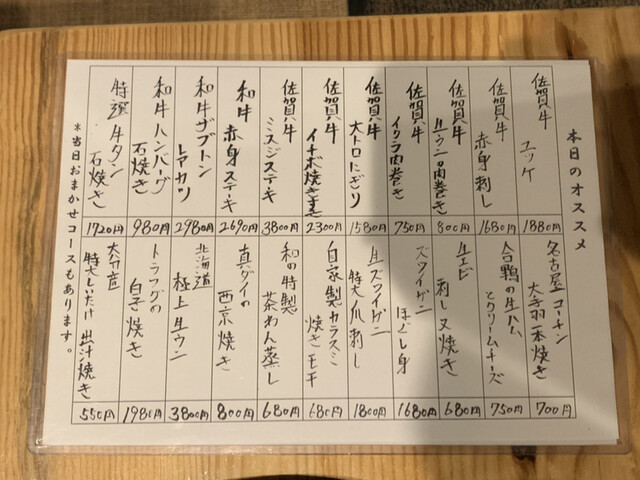 本日のオススメ
佐賀牛 ユッケ
1880円
佐賀牛 赤身刺し
1680円
佐賀牛 生ウニの肉巻き
800円
佐賀牛 イクラ肉巻き
750円
佐賀牛 大トロにぎり
1580円
佐賀牛 イチボ焼きすき
2300円
佐賀牛 ミスジステーキ
3800円
和牛 赤身ステーキ
2690円
和牛ザブトン レアカツ
2980円
和牛ハンバーグ 石焼き
980円
特選牛タン 石焼き
1720円
名古屋コーチン 大手羽一本焼き
700円
合鴨の生ハム とクリームチーズ
750円
生エビ 刺し又焼き
680円
ズワイガニ ほぐし身
1680円
生ズワイガニ 特大爪刺し
1800円
自家製カラスミ 焼きモチ
680円
和の特製 茶わん蒸し
680円
真ダイの 西京焼き
800円
北海道 極上生ウニ
3800円
トラフグの 白子焼き
1980円
大分産 特大しいたけ 出汁焼き
550円
*当日おまかせコースもあります。